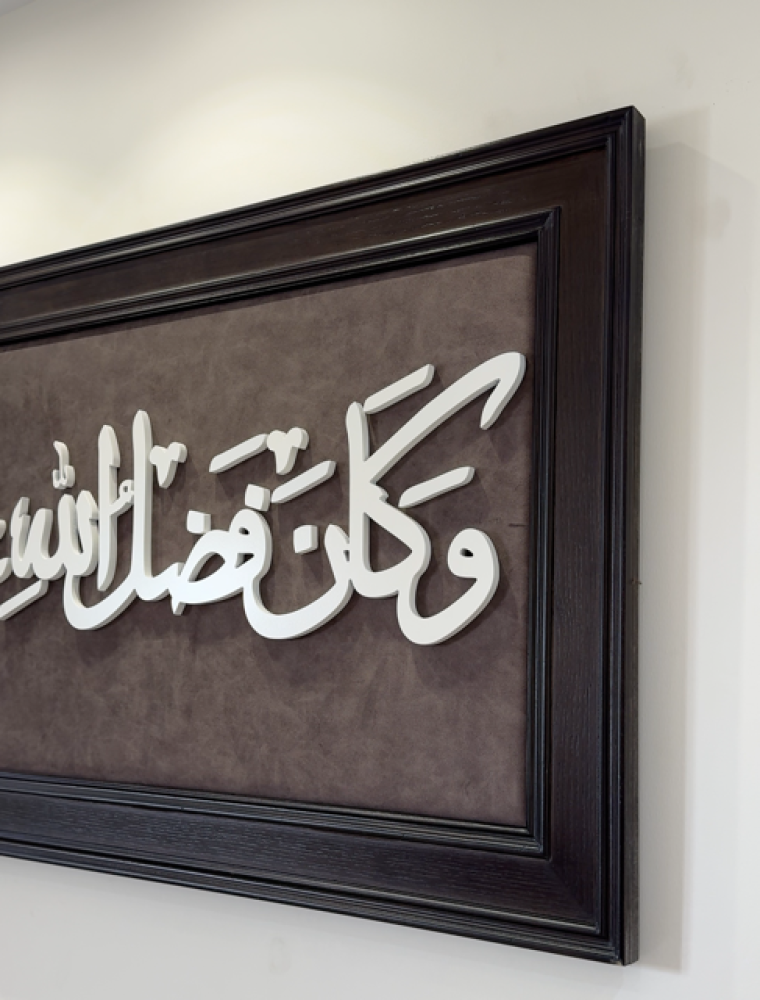 وَكَانَ فَضْلُ اللهِ